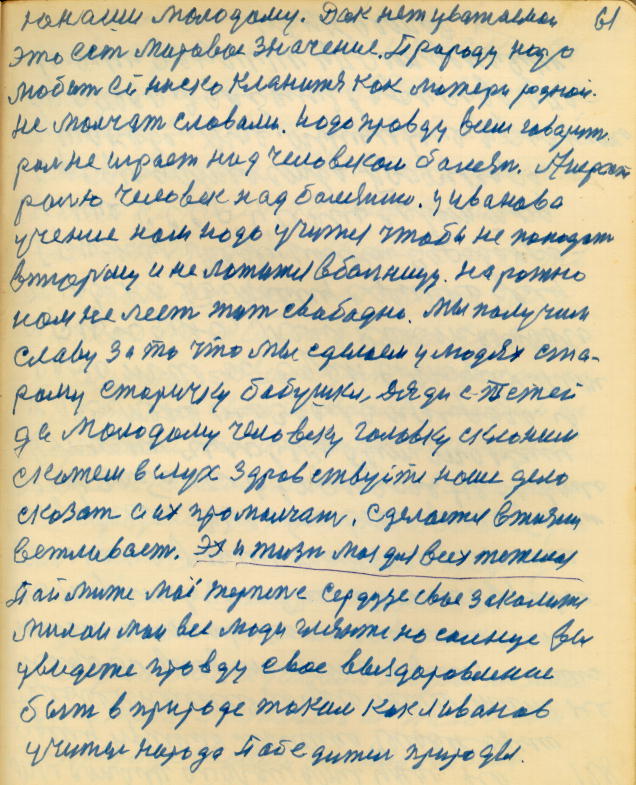 юнаши молодому. Дак нет уважаемои 61
это ест мировое значение. Природу надо
любыт ей ниско кланится как матери родной.
не молчат словами. надо правду всем говарит.
рол не играет над человеком болезн. А играет
ролю человек над болезнию. у иванова
учение нам надо учится чтобы не попадат
в тюрму и не ложится в болницу. на рожно
нам не леет жит свабадно. мы получим
славу за то что мы сделаем у людях ста-
рому старичку бабушки, дяди с тетей
да молодому человеку головку склоним
скажем в слух здравствуйте наше дело
сказат а их промолчат. сделается в жизни
вежливаст. эх и жизн моя для всех тяжелая
Паймите маё терпение сердце свае закалити
милаи маи все люди гляните на солнце вы
увидете правду свае выяздаровление
быт в природе таким как Иванов
учител народа Пабедител природы.